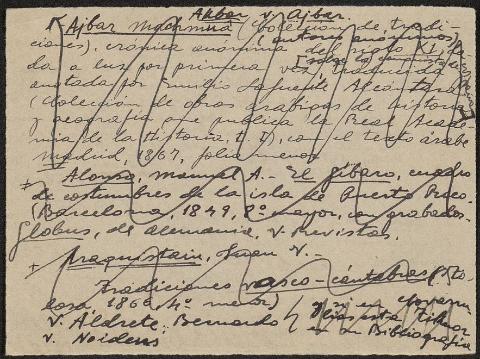 Akbar v. Ajbar.
Ajbar Machmuâ (Colección de tradi-
ciones), crónica anónima del siglo XI,
da a luz por primera vez, traducida
anotada por Emilio Lafuente Alcántara
(Colección de obras arábigas de historia
y geografía que publica la Real Acade-
mia de la Historia, t. I), con el texto árabe
Madrid, 1867, folio menor
+ Alonso, Manuel A.- El Gíbaro, cuadro
de costumbres de la isla de Puerto Rico.
(Barcelona, 1849, 8º mayor, con grabados.
Globus, de Alemania, v. Revistas.
+ Araquistain, Juan V.-
Tradiciones vasco-cántabras (To-
losa, 1866, 4º menor)
V. Aldrete, Bernardo
v. Noidens
en su Bibliografía